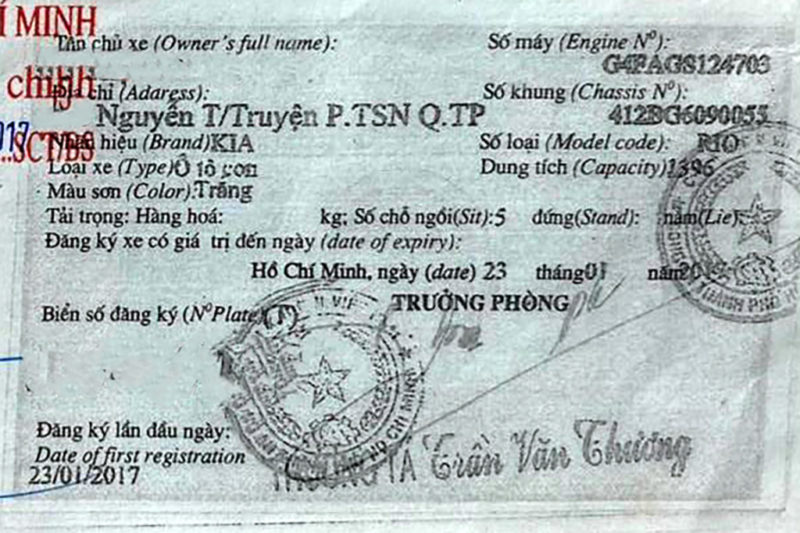 Í MINH
Tên chủ xe (Owner's full name):
Số máy (Engine Nº):
G4FAGS124703
chính
Địa chỉ (Adaress):
Số khung (Chassis Nº):
Nguyễn T/Truyện P.TSN Q.TP
412BG6090055
Nhãn hiệu (Brand)KIA
Số loại (Model code): RIO
...SCT/BS
Loại xe (Type)Ô tô con
Dung tích (Capacity)1396
Màu sơn (Color):Trắng
Tải trọng: Hàng hoá: kg; Số chỗ ngồi(Sit):5 đứng(Stand): nằm(Lie):
Đăng ký xe có giá trị đến ngày (date of expiry):
Hồ Chí Minh, ngày (date) 23 tháng01 năm
TRƯỞNG PHÒNG
Biển số đăng ký (NºPlate) (T)
Đăng ký lần đầu ngày:
Date of first registration
23/01/2017
THƯỢNG TÁ Trần Văn Thương